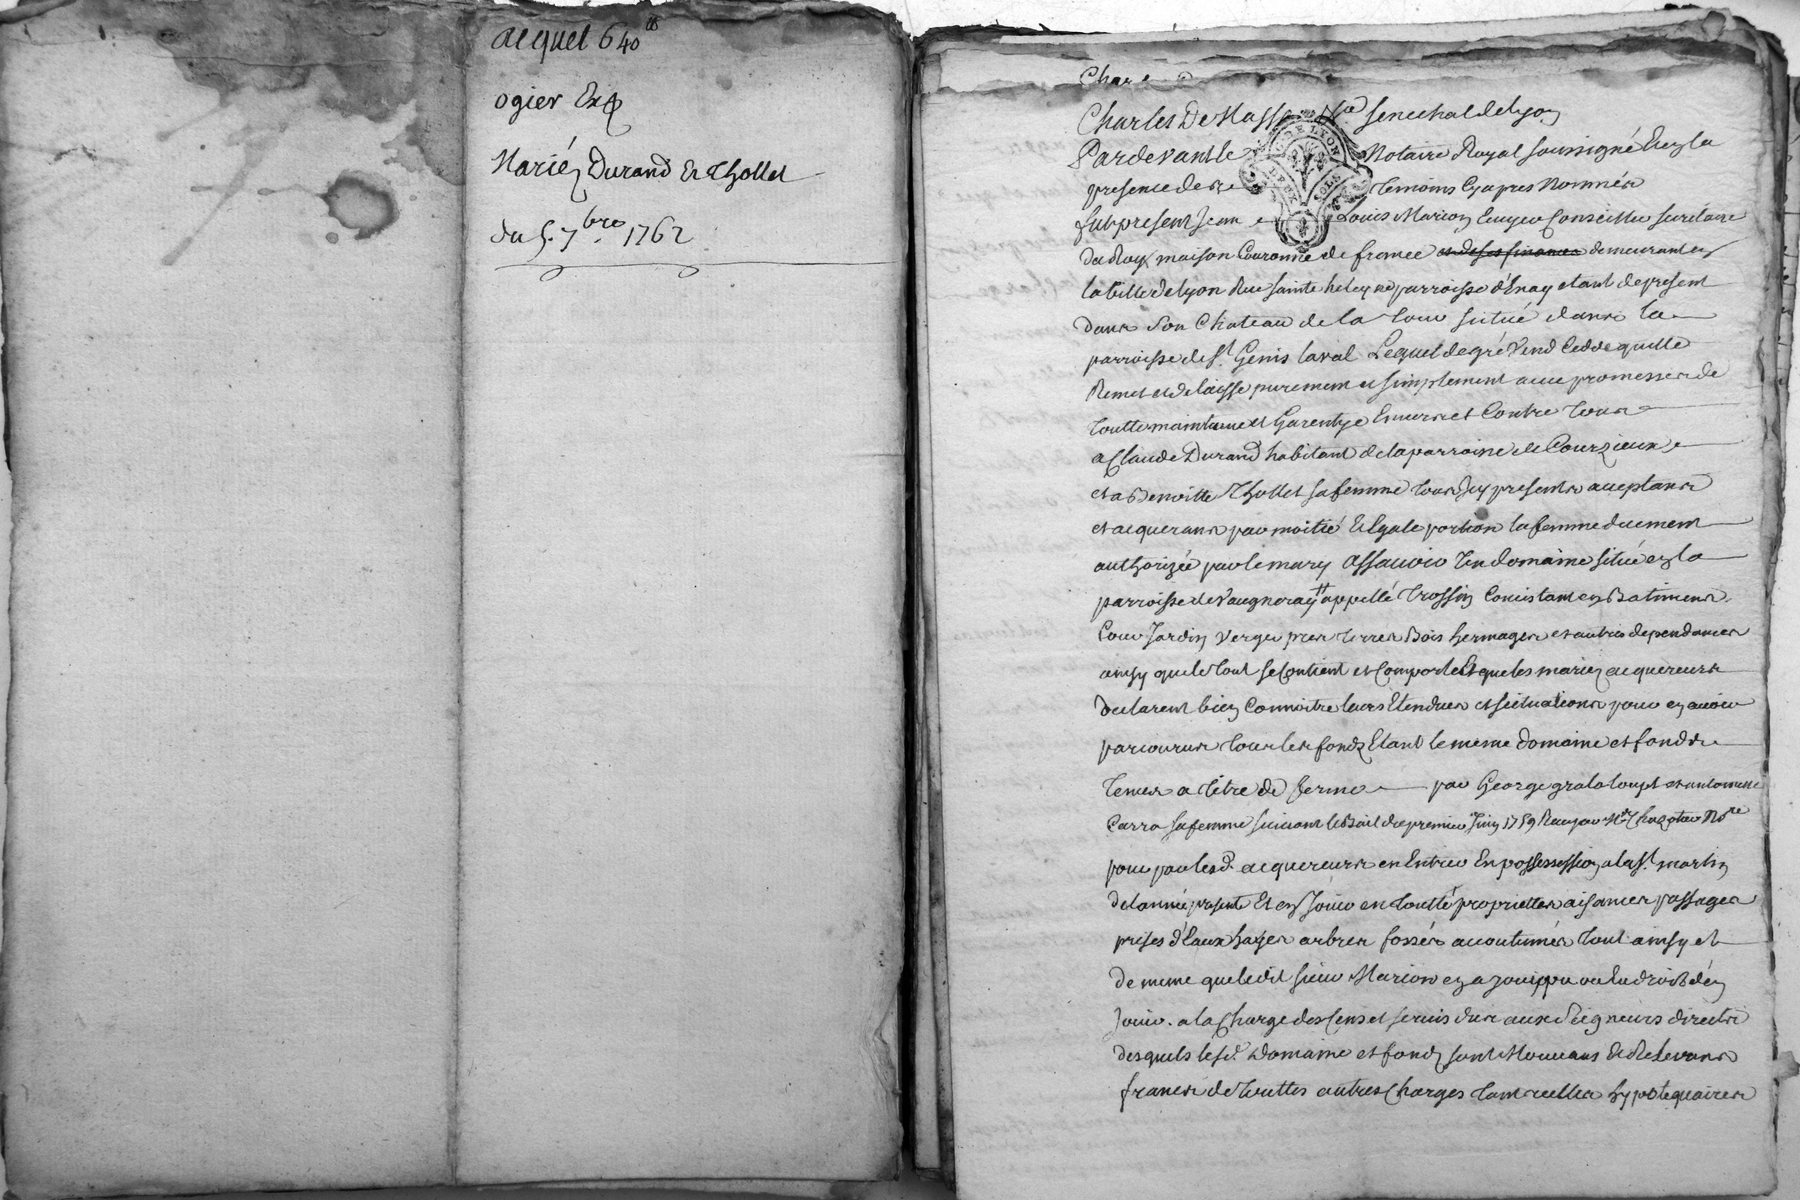 acquet 640
ogier Exp
Mariéz Durand Et Thollet
du 5. 7bre 1762
Char
Charles De Masso Senechal de Lyon
Pardevant le Notaire Royal soussigné Et en la
presence de temoins Cy apres Nommés
fut present Jean Louis Marion Ecuyer Conseiller secretaire
du Roy maison Couronne de france et de ses finances demeurant en
la ville de Lyon Rue sainte heleyne parroisse d'Enay etant de present
dans son Chateau de la tour situé dans la
parroisse de St. Genis laval Lequel de gré Vend Cedde quitte
Remet et delaisse purement et simplement avec promesses de
toutte maintenue et Garentye Envers et Contre tous
a Claude Durand habitant de la parroisse de Courzieux
et a Benoitte Thollet sa femme tous deux Icy presents acceptants
et acquerans par moitié Et Egale portion la femme duement
authorizée par le mary Assavoir Un domaine situé en la
parroisse de Vaugneray appellé trossin Consistant en Batiments
Cour Jardin Verger prés terres Bois hermages et autres dependances
ainsy que le tout se Contient et Comporte Et que les mariez acquereurs
declarent bien Connoitre leurs Etendues et situations pour en avoir
parcourus tous les fondz Etant le meme domaine et fondz
tenus a titre de ferme par George grataloup et antoinette
Carra sa femme suivant le Bail du premier Juin 1759 Reçu par Me. Chazotier Nore
pour par lesd. acquereurs en Entrer En possession a la St. martin
de l'année presente Et en Jouir en touttes proprietes aisances passages
prises d'Eaux hayes arbres fossés acoutumés tout ainsy et
de meme que ledit sieur Marion en a jouy pu ou du droit d'en
Jouir. a la Charge des Cens et servis dus aux Seigneurs directs
desquels lesd. Domaine et fondz sont Mouvans Et Relevans
francs de touttes autres Charges tant reelles hypotequaires